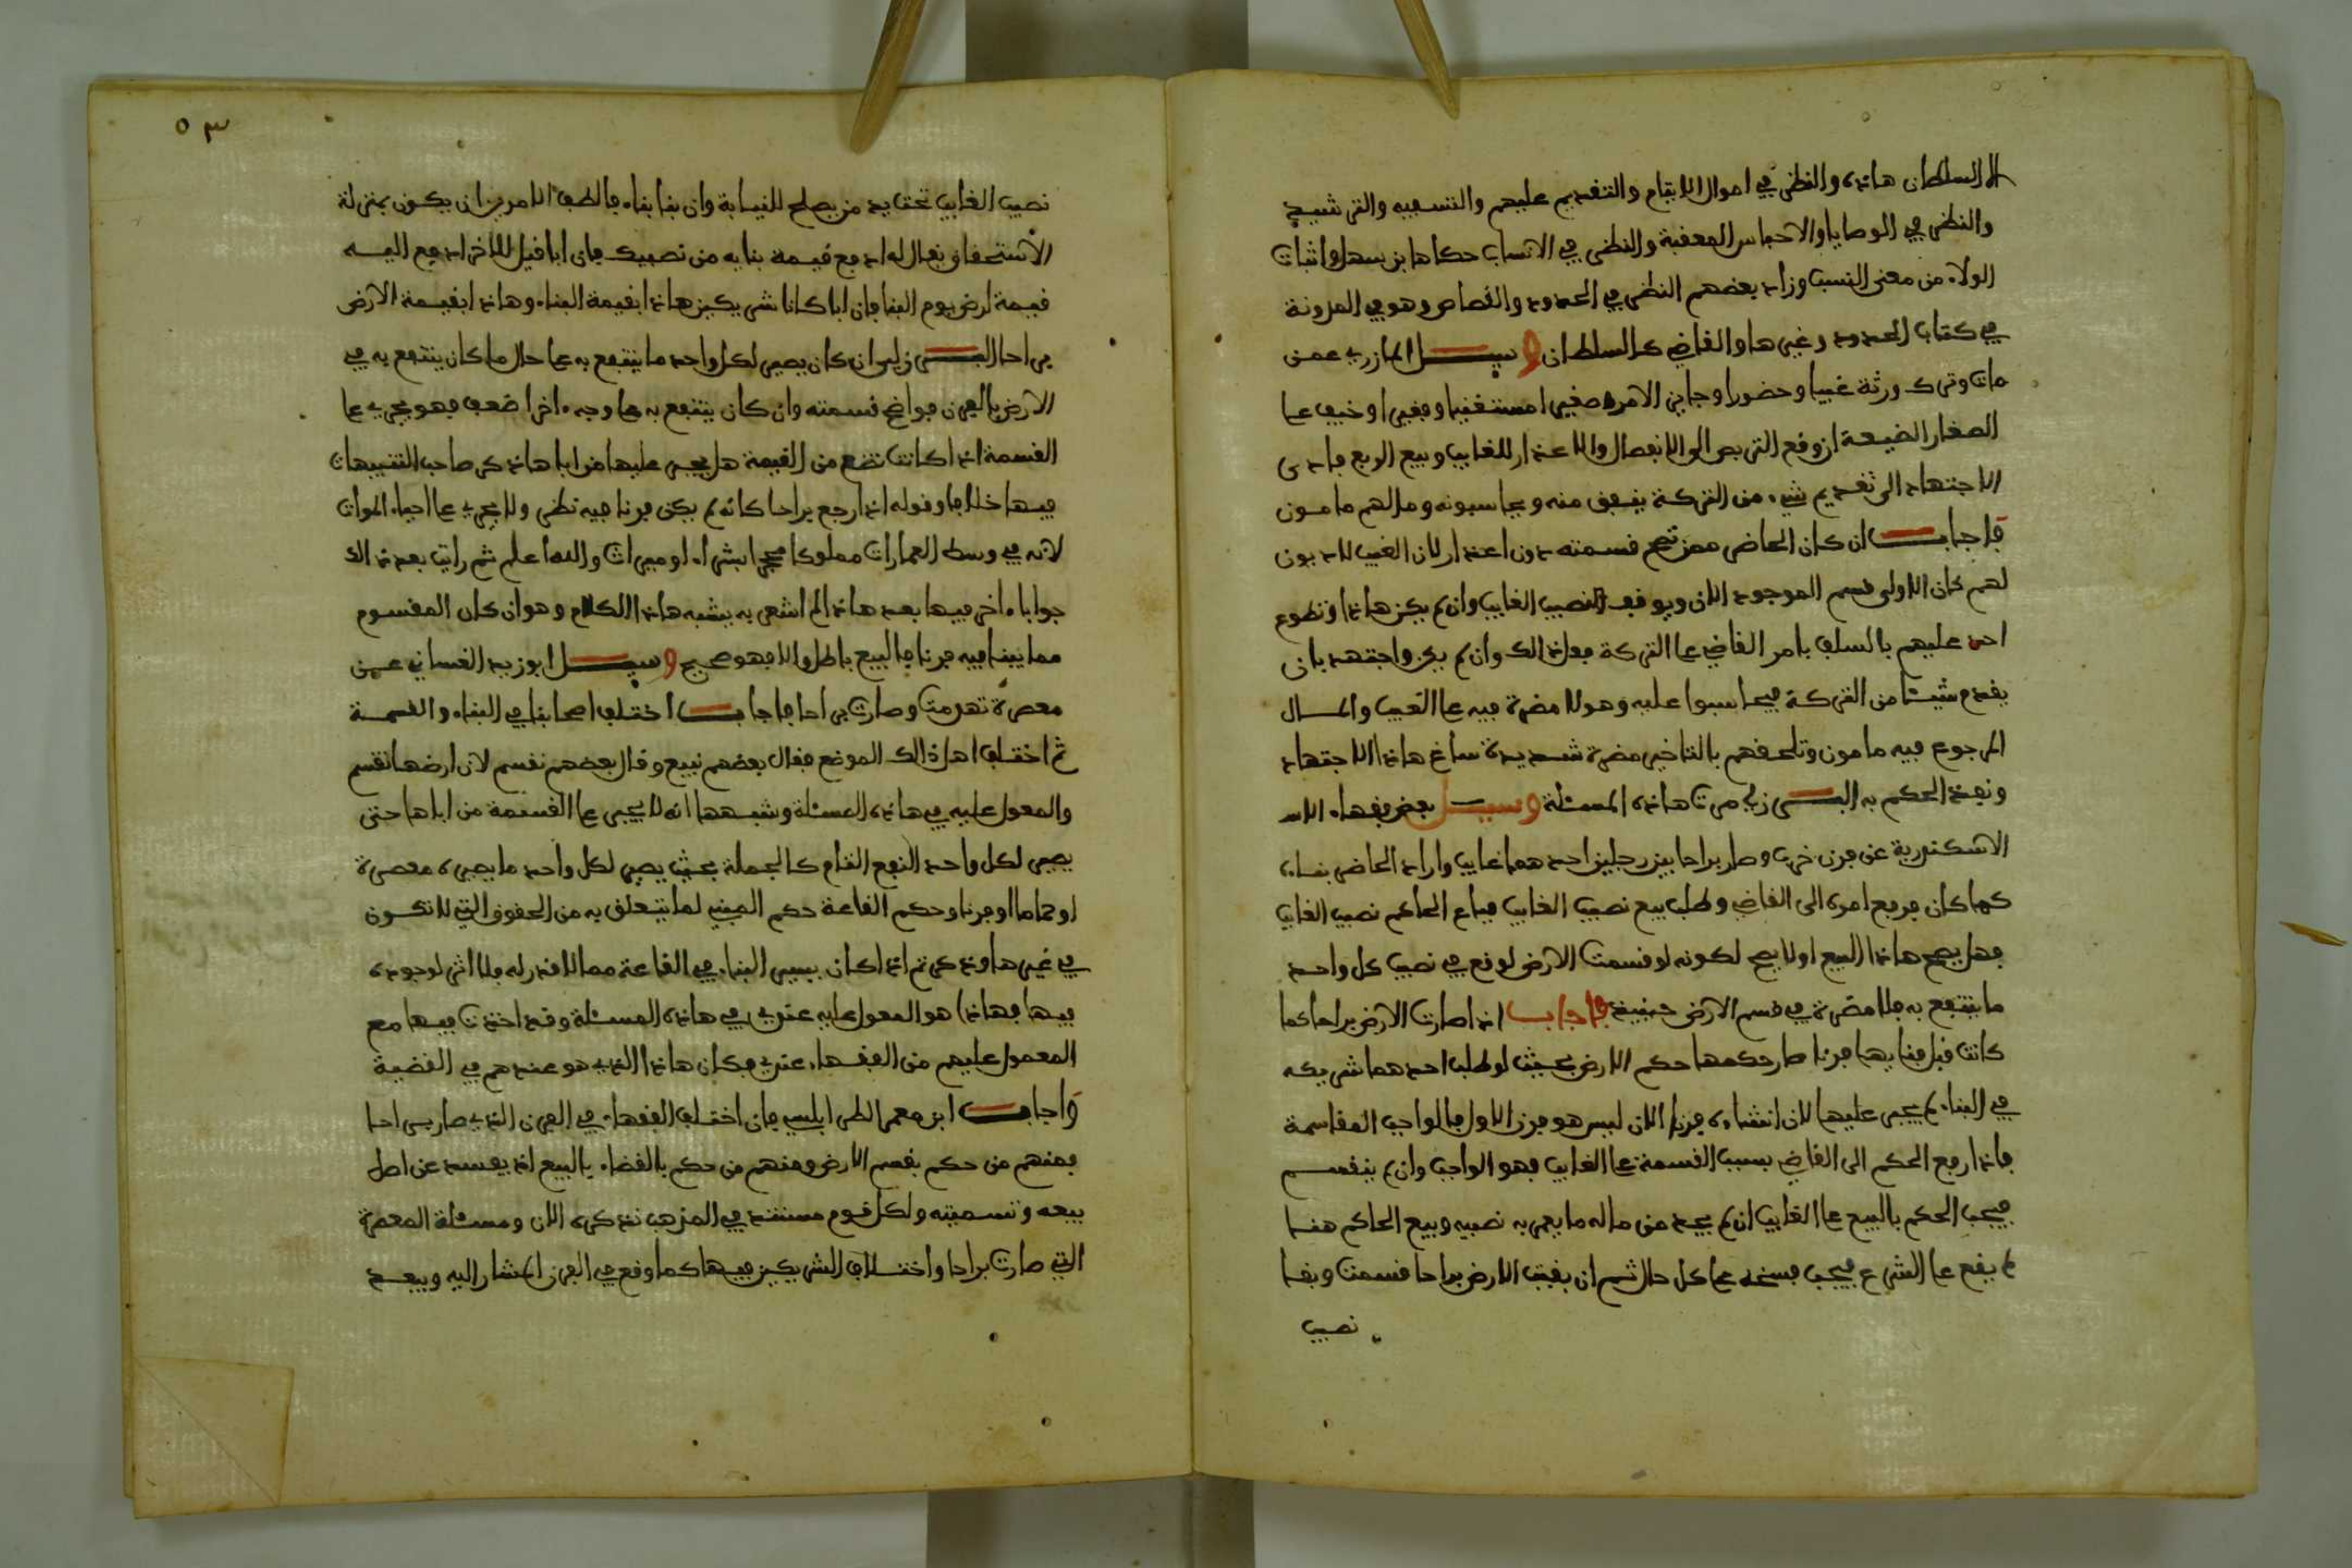 الا السلطان هاذه والنظر في اموال الايتام والتقديم عليهم والتسفيه والترشيد
والنظر في الوصايا والاحباس المعقبة والنظر في الانساب حكاها ابن سهل واثبات
الولاء من معنى النسب وزاد بعضهم النظر في الحدود والقصاص وهو في المدونة
في كتاب الحدود وغيرها والقاضي كالسلطان وسيل المازري عمن
مات وترك ورثة غيبا وحضورا وجابز الامر صغيرا مستغنيا وفقيرا وخيف على
الصغار الضيعة ان وقع التربص الى الانفصال والاعذار للغايب وبيع الربع فادى
الاجتهاد الى تقديم شيء من التركة ينفق منه ويحاسبونه ومالهم مامون
فاجاب ان كان الحاضر ممن تصح قسمته دون اعذار لان الغيب لا ديون
لهم كان الاولى قسم الموجود الان ويوقف نصيب الغايب وان لم يكن هاذا وتطوع
احد عليهم بالسلف بامر القاضي على التركة فعل ذالك وان لم يكن واجتهد بان
يقدم شيئا من التركة فيحاسبوا عليه وهو لا مضرة فيه على الغيب والمال
المرجوع فيه مامون وتلحقهم بالتاخير مضرة شديدة ساغ هاذا الاجتهاد
ونفذ الحكم به البرزلي مرت هاذه المسئلة وسيل بعض فقهاء الا
الاسكندرية عن فرن خرب وصار براحا بين رجلين احدهما غايب واراد الحاضر بناءه
كما كان فرفع امره الى القاضي وطلب بيع نصيب الغايب فباع الحاكم نصيب الغايب
فهل يصح هاذا البيع اولا يصح لكونه لو قسمت الارض لوقع في نصيب كل واحد
ما ينتفع به فلا مضرة في قسم الارض حينيذ فاجاب اذا صارت الارض براحا كما
كانت قبل بنايها فرنا صار حكمها حكم الارض بحيث لو طلب احدهما شريكه
في البناء لم يجبر عليها لان انشاءه فرنا الان ليس هو فرن الاول فالواجب المقاسمة
فاذا رفع الحكم الى القاضي بسبب القسمة على الغايب فهو الواجب وان لم ينقسم
فيجب الحكم بالبيع على الغايب ان لم يجد من ماله ما يعمر به نصيبه وبيع الحاكم هنا
لم يقع على الشرع فيجب فسخه على كل حال ثم ان بقيت الارض براحا قسمت وبقا
نصيب
٥٣
نصيب الغايب تحت يد من يصلح للنيابة وان بنا بناء فالطف الامرين ان يكون بمنزلة
الاستحقاق يقال له ادفع قيمة بنايه من نصيبك فان ابا قيل للاخر ادفع اليه
قيمة ارض يوم البنا فان ابا كانا شريكين هاذا بقيمة البناء وهاذا بقيمة الارض
براحا البرزلي ان كان يصير لكل واحد ما ينتفع به على حال ما كان ينتفع به في
الارض بالفرن فواضح قسمته وان كان ينتفع به على وجه اخر اضعف فهو يجري على
القسمة اذا كانت تضع من القيمة هل يجبر عليها من اباها ذكر صاحب التنبيهات
فيها خلافا وقوله اذا رجع براحا كانه لم يكن فرنا فيه نظر ولا يجري على احياء الموات
لانه في وسط العمارات مملوكا بشراء او ميراث والله اعلم ثم رايت بعد ذالك
جوابا اخر فيها بعد هاذا لم اشعر به يشبه هاذا الكلام وهو ان كان المقسوم
مما يبنا فيه فرنا فالبيع باطل والا فهو صحيح وسيل ابو زيد الغساني عمن
معصرة تهدمت وصارت براحا فاجاب اختلف اصحابنا في البناء والقسمة
ثم اختلف اهل ذالك الموضع فقال بعضهم نبيع وقال بعضهم نقسم لان ارضها تقسم
والمعول عليه في هاذه المسئلة وشبهها انه لا يجبر على القسمة من اباها حتى
يصير لكل واحد النفع التام كالجملة بحيث يصير لكل واحد ما يصيره معصرة
او حماما او فرنا وحكم القاعة حكم المبني لما يتعلق به من الحقوق التي لا تكون
في غيرها وذكر ثم اذا كان يسير البناء في القاعة مما لا قدر له فلا اثر لوجوده
فيها فهاذا هو المعول عليه عندي في هاذه المسئلة وقد اخذت فيها مع
المعمول عليهم من الفقهاء عندي فكان هاذا الذي هو عندهم في القضية
واجاب ابن معمر الطرابلسي بان اختلف الفقهاء في الفرن الذي صار براحا
فمنهم من حكم بقسم الارض ومنهم من حكم بالقضاء بالبيع اذ يفسد عن اصل
بيعه وتسميته ولكل قوم مستند في المذهب نذكره الان ومسئلة المعصرة
التي صارت براحا واختلاف الشريكين فيها كما وقع في الفرن المشار اليه ويبعد